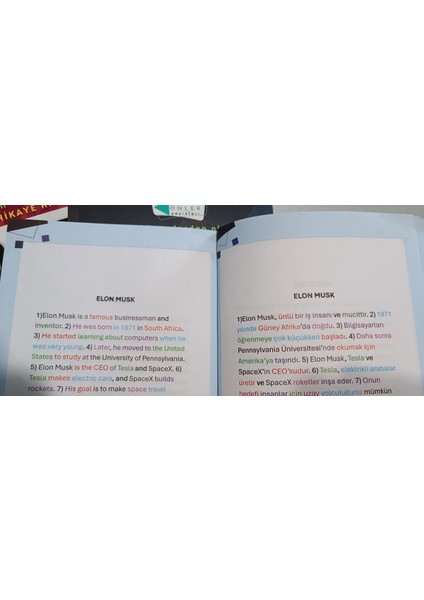 HİKAYE K
ÖNLER
ELON MUSK
1)Elon Musk is a famous businessman and
inventor. 2) He was born in 1971 in South Africa.
3) He started learning about computers when he
was very young. 4) Later, he moved to the United
States to study at the University of Pennsylvania.
5) Elon Musk is the CEO of Tesla and SpaceX. 6)
Tesla makes electric cars, and SpaceX builds
rockets. 7) His goal is to make space travel
ELON MUSK
1)Elon Musk, ünlü bir iş insanı ve mucittir. 2) 1971
yılında Güney Afrika'da doğdu. 3) Bilgisayarları
öğrenmeye çok küçükken başladı. 4) Daha sonra
Pennsylvania Üniversitesi'nde okumak için
Amerika'ya taşındı. 5) Elon Musk, Tesla ve
SpaceX'in CEO'sudur. 6) Tesla, elektrikli arabalar
üretir ve SpaceX roketler inşa eder. 7) Onun
hedefi insanlar için uzay yolculuğunu mümkün